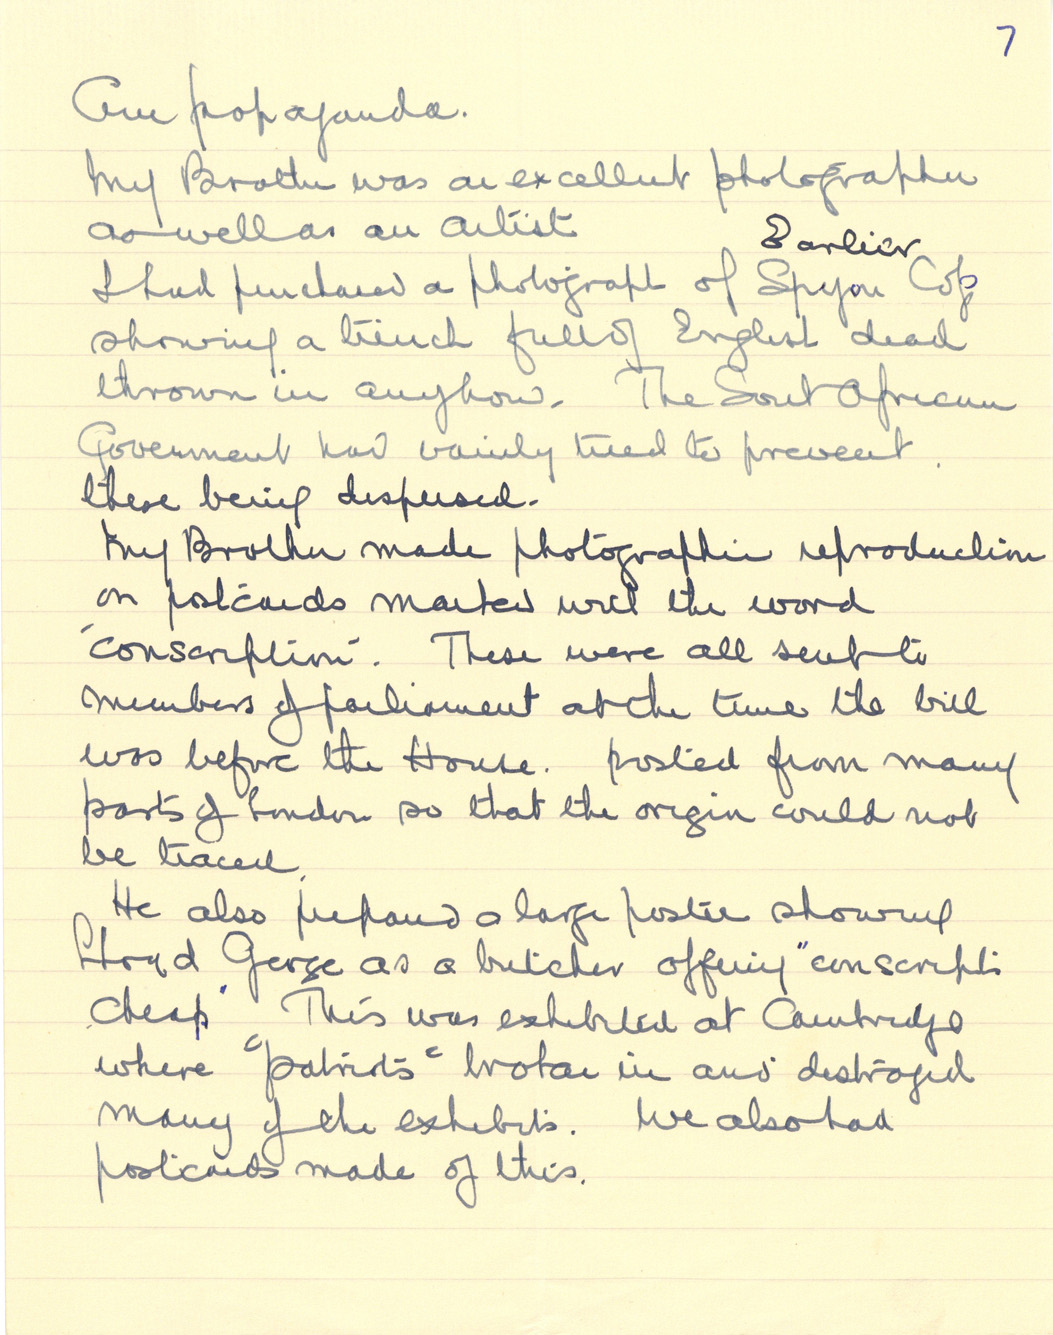 7
Our propaganda.
My Brother was an excellent photographer
as well as an artist.
Earlier
I had purchased a photograph of Spyon Cop
showing a trench full of English dead
thrown in anyhow. The Sout African
Government had vainly tried to prevent
these being dispersed.
My Brother made photographic reproduction
on postcards marked with the word
'conscription'. These were all sent to
members of parliament at the time the bill
was before the House. posted from many
parts of London so that the origin could not
be traced.
He also prepared a large poster showing
Lloyd George as a butcher offering "conscripts
cheap" This was exhibited at Cambridge
where "patriots" broke in and destroyed
many of the exhibits. We also had
postcards made of this.